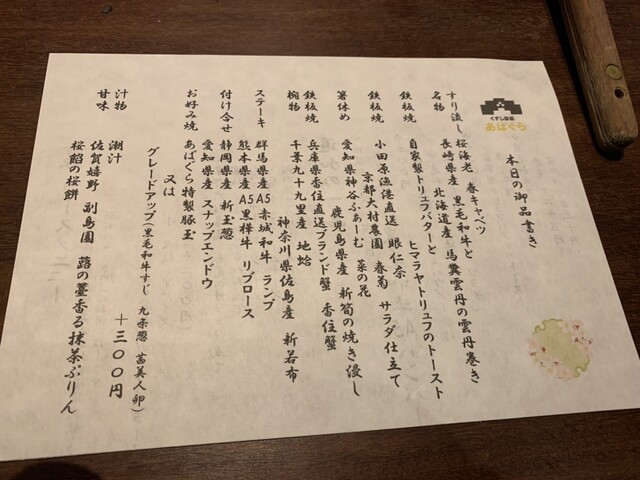 本日の御品書き
くずし割烹
あばぐら
すり流し 桜海老 春キャベツ
名物 長崎県産 黒毛和牛と
北海道産 馬糞雲丹の雲丹巻き
鉄板焼 自家製トリュフバターと
ヒマラヤトリュフのトースト
鉄板焼 小田原漁港直送 眼仁奈
京都大村農園 春菊 サラダ仕立て
箸休め 愛知県神谷ふぁーむ 菜の花
鹿児島県産 新筍の焼き浸し
鉄板焼 兵庫県香住直送ブランド蟹 香住蟹
椀物 千葉九十九里産 地蛤
神奈川県佐島産 新若布
ステーキ 群馬県産A5赤城和牛 ランプ
熊本県産A5黒樺牛 リブロース
付け合せ 静岡県産 新玉葱
愛知県産 スナップエンドウ
お好み焼 あばぐら特製豚玉
又は
グレードアップ(黒毛和牛すじ 九条葱 茜美人卵)
+三〇〇円
汁物 潮汁
甘味 佐賀嬉野 副島園 蕗の薹香る抹茶ぷりん
桜餡の桜餅